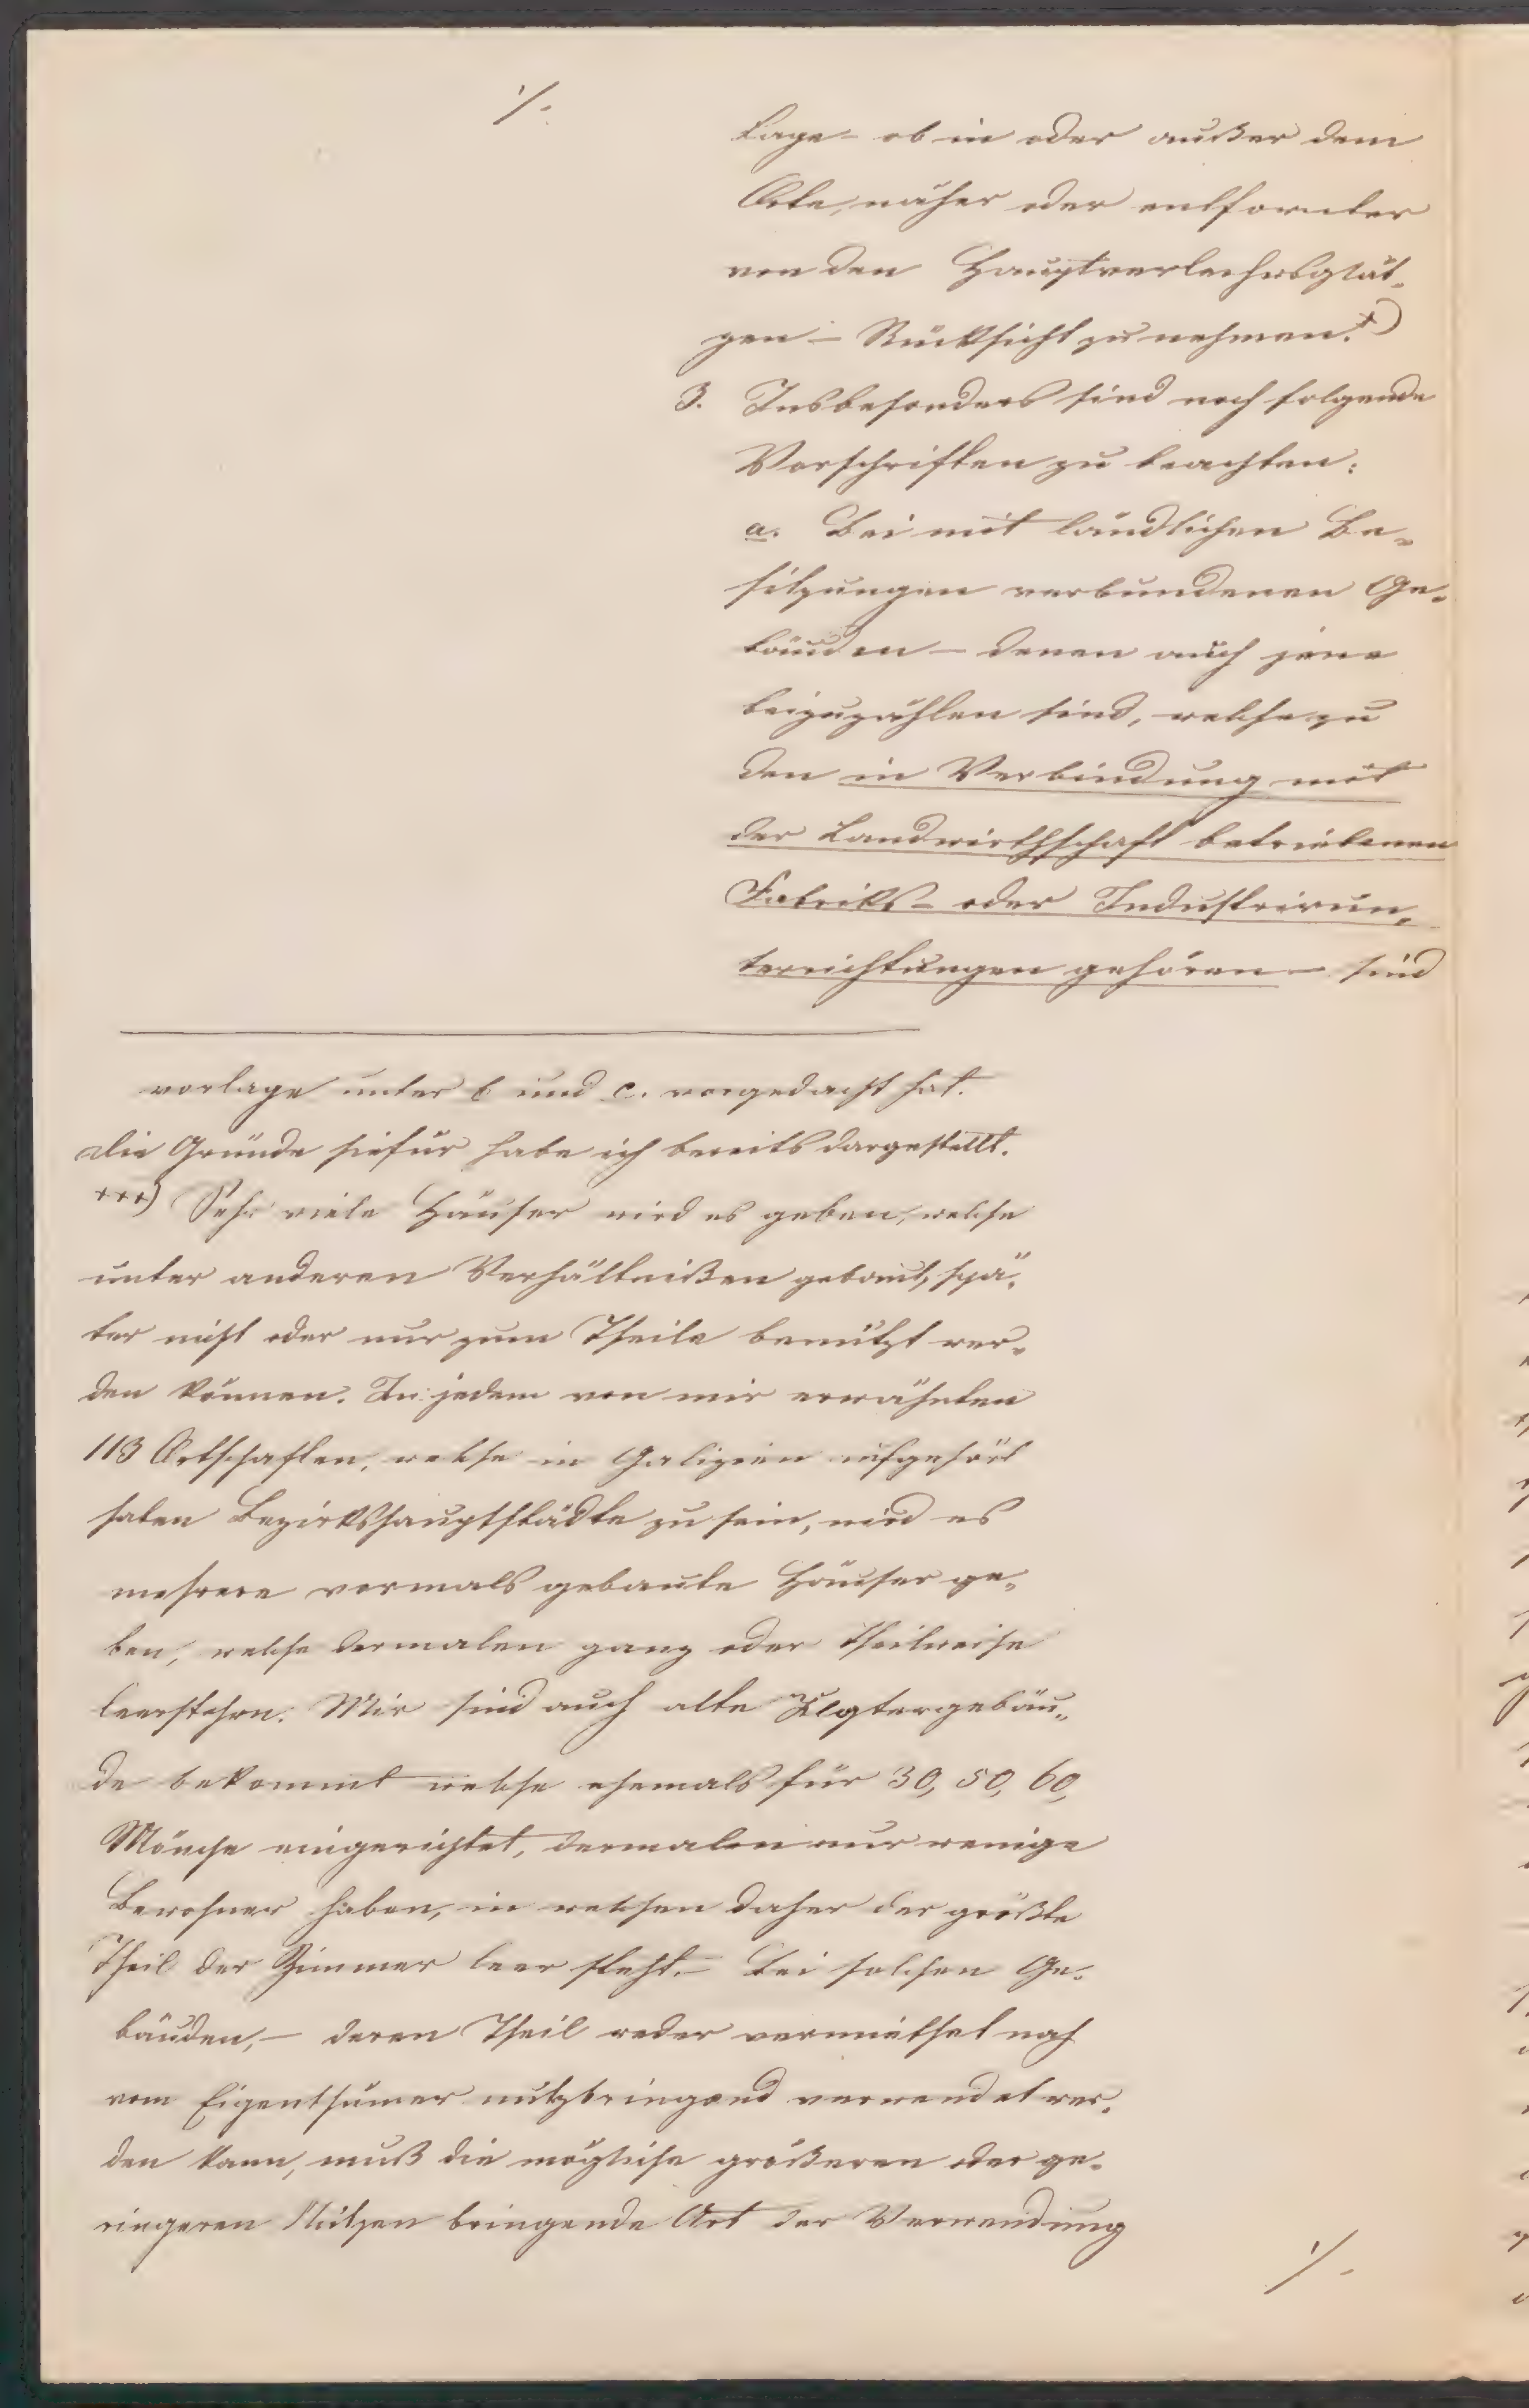 ./.
Lage – ob in oder außer dem
Orte, näher oder entfernter
von den Hauptverkehrsplät-
zen – Rücksicht zu nehmen. +)
3. Insbesonders sind noch folgende
Vorschriften zu beachten:
a. Bei mit ländlichen Be-
sitzungen verbundenen Ge-
bäuden – denen auch jene
beizuzählen sind, welche zu
den in Verbindung mit
der Landwirthschaft betriebenen
Fabriks- oder Industrieun-
terrichtungen gehören – sind
vorlage unter b und c. vorgedacht hat.
Die Gründe hiefür habe ich bereits dargestellt.
+++) Sehr viele Häuser wird es geben, welche
unter anderen Verhältnißen gebaut, spä-
ter nicht oder nur zum Theile benützt wer-
den können. In jedem von mir erwähnten
113 Ortschaften, welche in Galizien aufgehört
haben Bezirkshauptstädte zu sein, wird es
mehrere vormals gebaute Häuser ge-
ben, welche dermalen ganz oder theilweise
leerstehen. Mir sind auch alte Klostergebäu-
de bekannt welche ehemals für 30, 50, 60,
Mönche eingerichtet, dermalen nur wenige
Bewohner haben, in welchen daher der größte
Theil der Zimmer leer steht. – Bei solchen Ge-
bäuden, – deren Theil weder vermiethet noch
vom Eigenthümer nutzbringend verwendet wer-
den kann, muß die mögliche größeren oder ge-
ringeren Nutzen bringende Art der Verwendung
./.